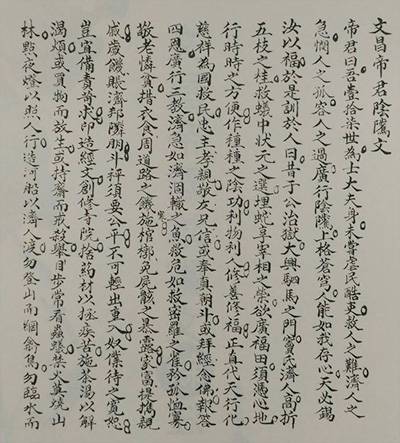 文昌帝君陰騭文
帝君曰吾壹拾柒世為士大夫身未嘗虐民酷吏救人之難濟人之
急憫人之孤容人之過廣行陰騭上格蒼穹人能如我存心天必錫
汝以福於是訓於人曰昔于公治獄大興駟馬之門竇氏濟人高折
五枝之桂救蟻中狀元之選埋蛇享宰相之榮欲廣福田須憑心地
行時時之方便作種種之陰功利物利人修善修福正直代天行化
慈祥為國救民忠主孝親敬友兄信或奉真朝斗或拜經念佛報答
四恩廣行三教濟急如濟涸轍之魚救危如救密羅之雀矜孤恤寡
敬老憐貧措衣食周道路之饑寒施棺槨免屍骸之暴露家富提攜親
戚歲饑賑濟邦隣朋斗秤須要公平不可輕出重入奴僕待之寬恕
豈宜備責苛求印造經文創修寺院捨藥材以拯疾苦施茶湯以解
渴煩或買物而放生或持齋而戒殺舉目步常看蟲蟻禁火莫燒山
林點夜燈以照人行造河船以濟人渡勿登山而網禽鳥勿臨水而